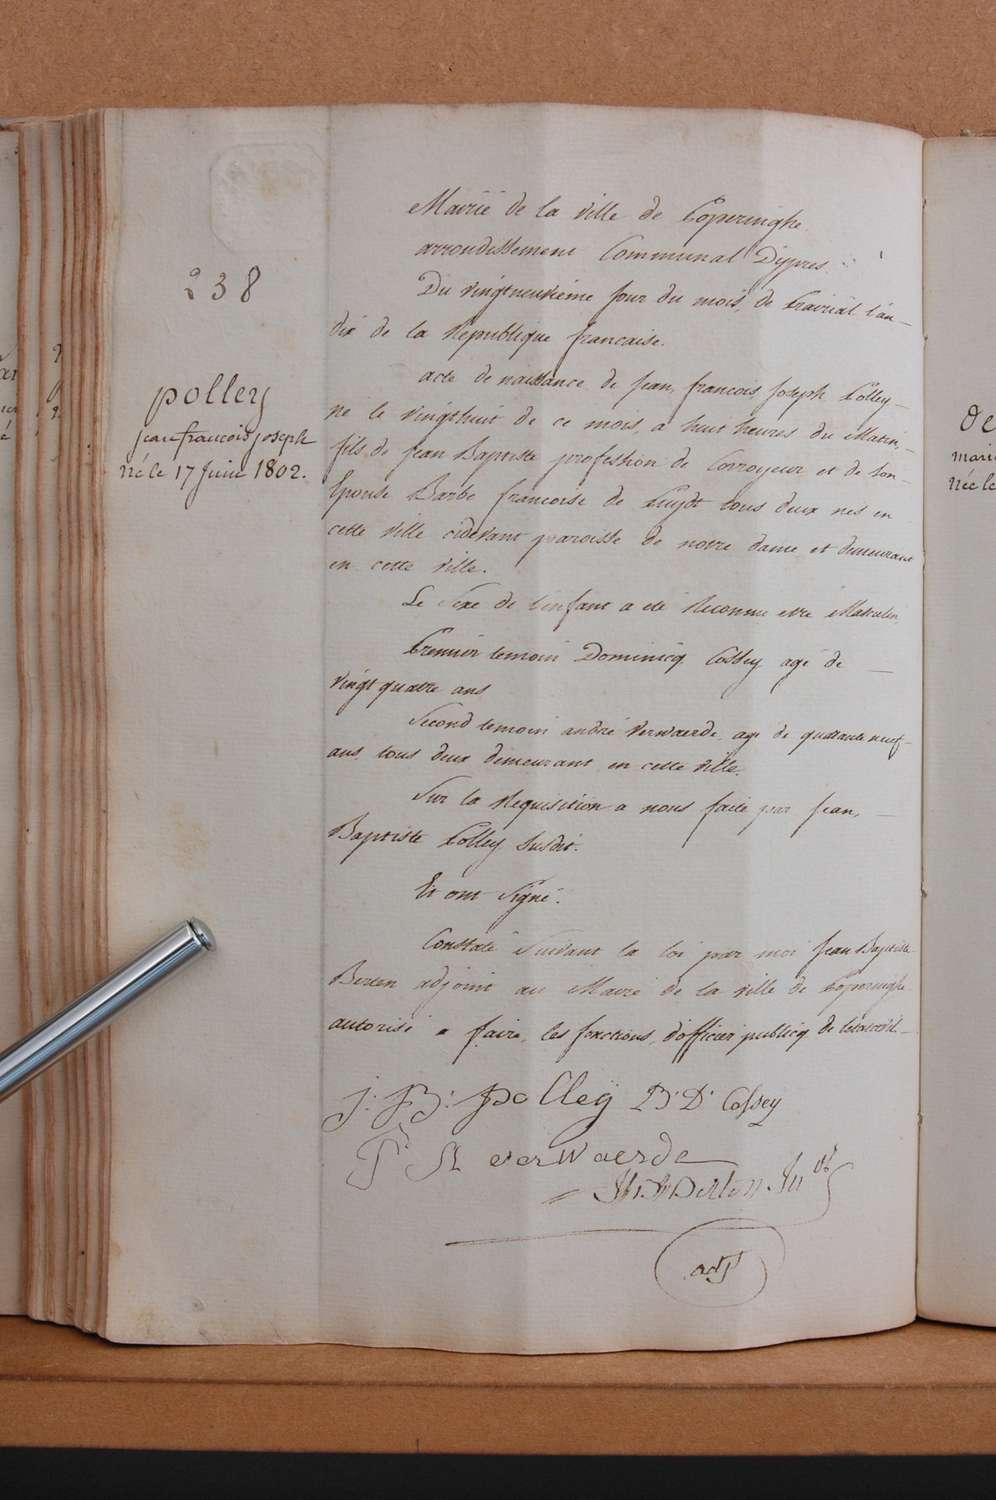 238
polley
jean françois joseph
Né le 17 Juin 1802.
Mairie de la ville de Poperinghe
arrondissement Communal D'ypres
Du vingtneuvieme jour du mois de Prairial l'an
dix de la Republique francaise.
acte de naissance de Jean, francois, Joseph Polley
né le vingthuit de ce mois, a huit heures du Matin,
fils de Jean Baptiste profession de Corroyeur et de son
Epouse Barbe francoise de tous deux nes en
cette ville cidevant paroisse de notre dame et demeurant
en cette ville.
Le Sexe de l'enfant a été Reconnu etre Masculin
Premier temoin Dominicq Cossey agé de
vingt quatre ans
Second temoin andré verwaerde age de quarante neuf
ans, tous deux demeurant en cette ville.
Sur la Requisition a nous faite par Jean,
Baptiste Polley susdit.
Et ont Signé.
Constaté Suivant la loi par moi Jean Baptiste
Berten adjoint au Maire de la ville de Poperinghe
autorisé a faire, les fonctions, d'officier publicq de l'etat civil
J: B: polleÿ B: D: Cossey
verwaerde
Berten
adjt